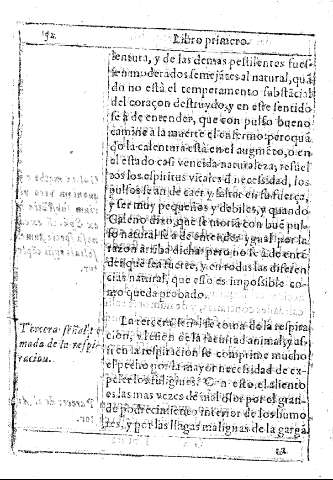 Libro primero.
lentura, y de las demas pestilentes fues-
sen moderados semejãtes al natural, quã
do no està el temperamento substãcial
del coraçon destruydo, y en este sentido
se à de entender, que con pulso bueno
camine à la muerte el enfermo: pero quã
do la calentura està en el augmẽto, o en
el estado casi vencida naturaleza, resuel
tos los espiritus vitales d necessidad, los
pulsos se an de caer y faltar en su fuerça,
y ser muy pequeños y debiles, y quando
Galeno dixo, que se moria con buẽ pul-
so natural se à de entender ygual por la
razon arriba dicha: pero no se à de entẽ
der que sea fuerte, y en todas las diferen
cias natural, que esso es impossible co-
mo queda probado.
Tercera señal: to
mada de la respi-
racion.
La tercera señal se toma de la respira-
cion, y lesion de la facultad animal, y as
si en la respiracion se comprime mucho
el pecho por la mayor necessidad de ex-
peler los fuligines. Con esto, el aliento
es las mas vezes de mal olor por el gran-
de podrecimiento interior de los humo
res, y por las llagas malignas de la gargã